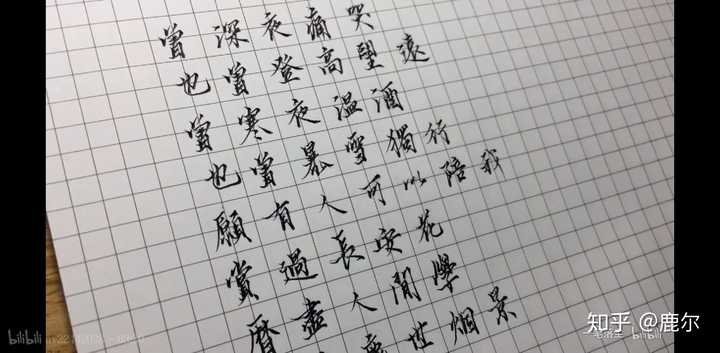 曾深夜痛哭
也曾登高望遠
曾寒夜温酒
也曾暴雪獨行
願有人可以陪我
賞過長安花
歷盡人間
世烟景
知乎 @鹿尔
bilibili
bilibili